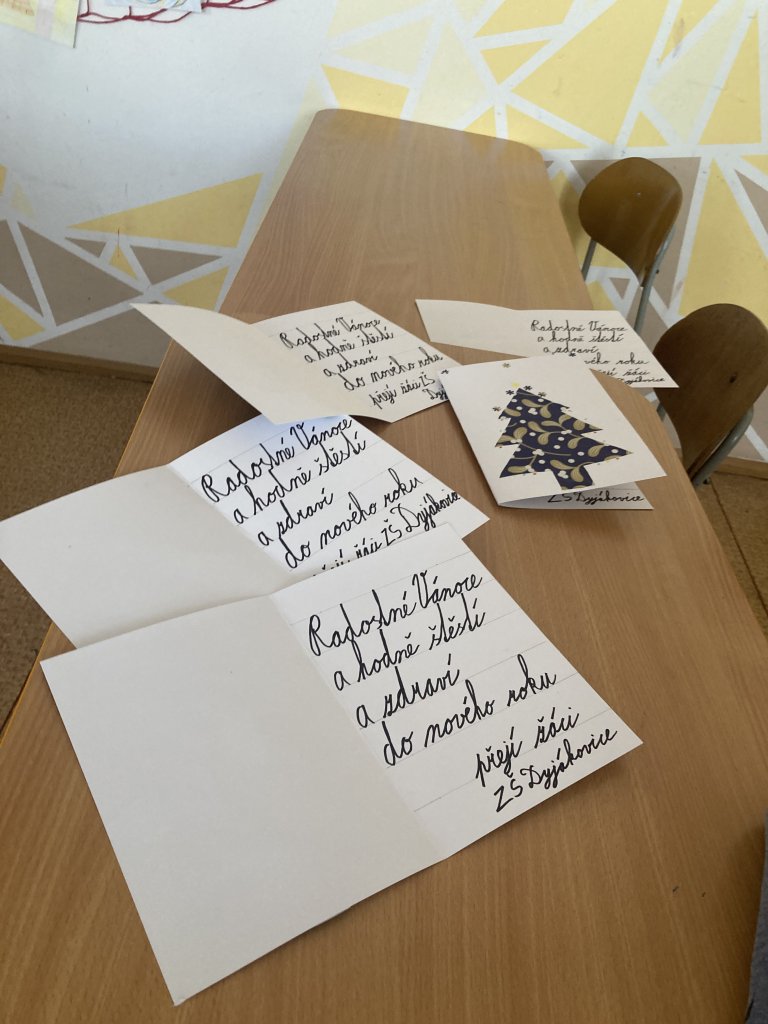 Radostné Vánoce
a hodně štěstí
a zdraví
do nového roku
přejí žáci
Radostné Vánoce
a hodně štěstí
a zdraví
nového roku
přejí žáci
ZŠ Dyjákovice
ZŠ Dyjákovice
Radostné Vánoce
a hodně štěstí
a zdraví
do nového roku
přejí žáci ZŠ Dyjákovice
Radostné Vánoce
a hodně štěstí
a zdraví
do nového roku
přejí žáci
ZŠ Dyjákovice